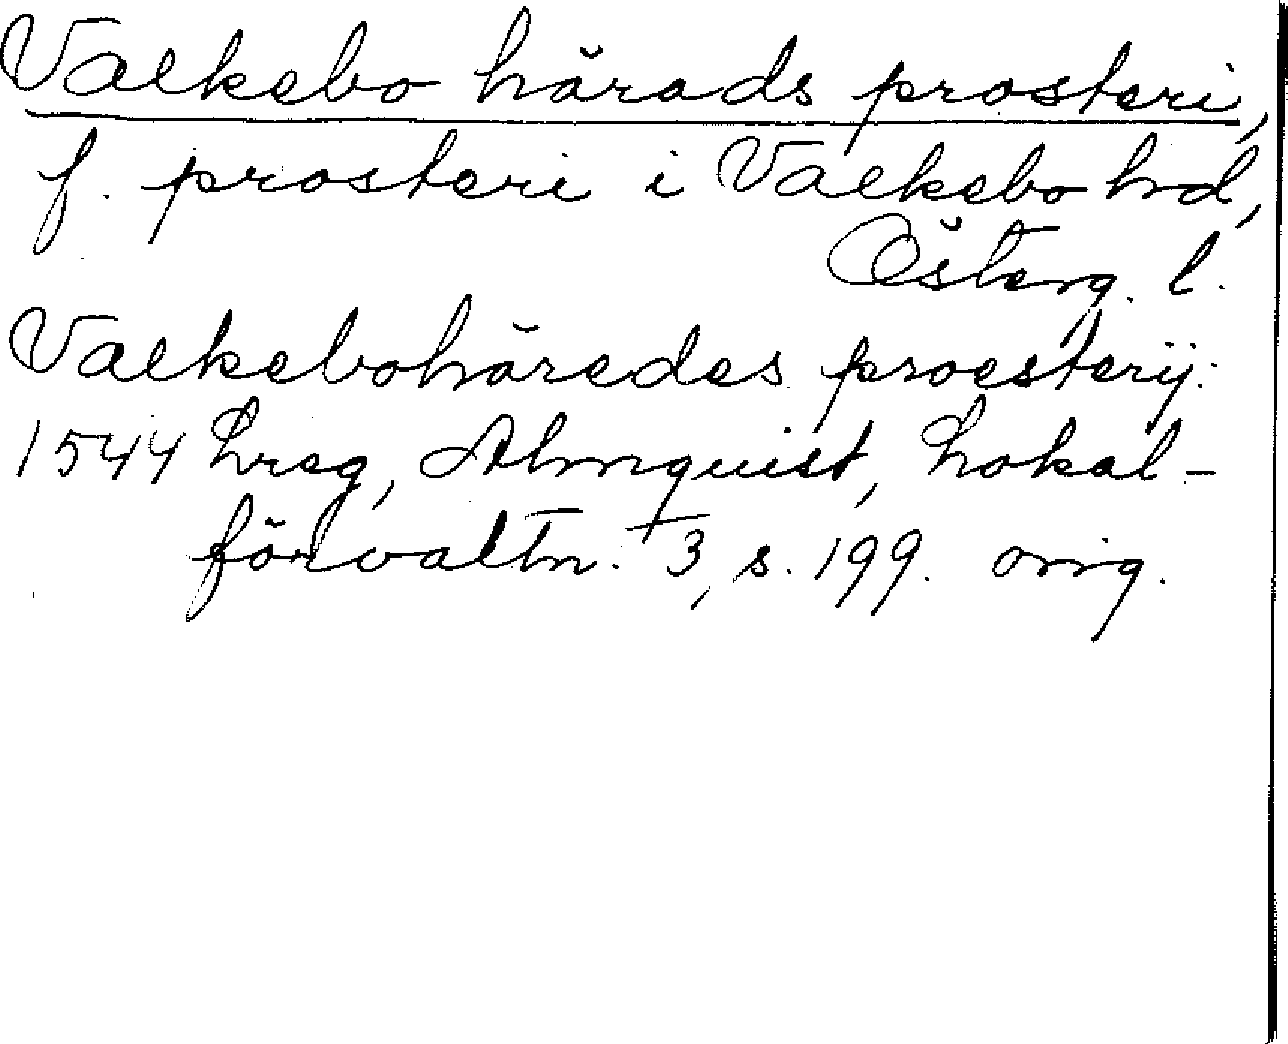 Valkebo härads prosteri,
f. prosteri i Valkebo hrd,
Österg. l.
Valkebohäredes proesterij:
1544 Lreg, Almquist, Lokal-
förvaltn. 3, s. 199. orig.